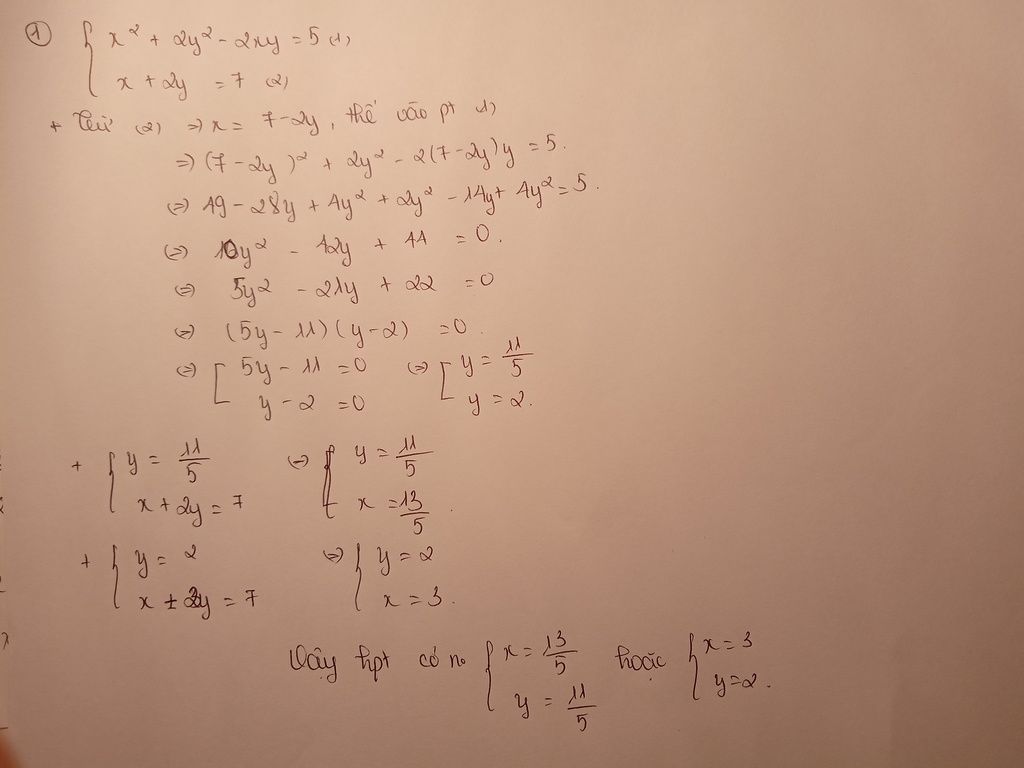 ① { x² + 2y² - 2xy = 5 (1)
x + 2y = 7 (2)
+ Từ (2) ⇒ x = 7-2y, thế vào pt (1)
⇒ (7 - 2y)² + 2y² - 2(7-2y)y = 5.
⇔ 49 - 28y + 4y² + 2y² - 14y + 4y² = 5.
⇔ 10y² - 42y + 44 = 0.
⇔ 5y² - 21y + 22 = 0
⇔ (5y - 11)(y-2) = 0.
⇔ [ 5y - 11 = 0 ⇔ [ y = 11/5
y - 2 = 0 y = 2.
+ { y = 11/5 ⇔ { y = 11/5
x + 2y = 7 x = 13/5.
+ { y = 2 ⇔ { y = 2
x + 2y = 7 x = 3.
Vậy hpt có no { x = 13/5 hoặc { x = 3
y = 11/5 y = 2.